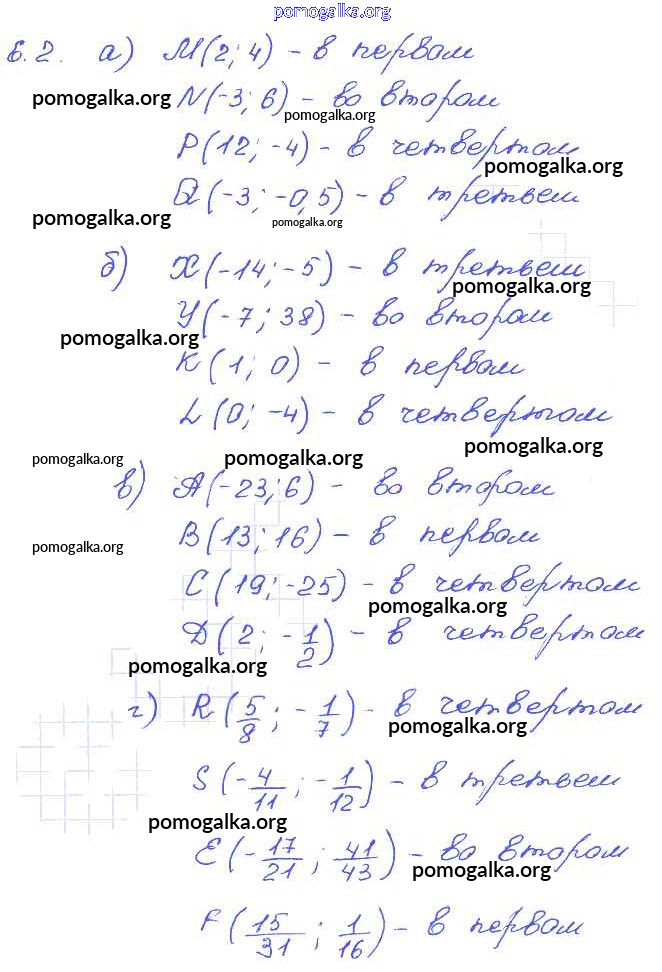 pomogalka.org
6.2. а) M(2; 4) - в первом
pomogalka.org N(-3; 6) - во втором
pomogalka.org
P(12; -4) - в четвертом
pomogalka.org
Q(-3; -0,5) - в третьем
pomogalka.org pomogalka.org
б) X(-14; -5) - в третьем
pomogalka.org
Y(-7; 38) - во втором
pomogalka.org
K(1; 0) - в первом
L(0; -4) - в четвертом
pomogalka.org
pomogalka.org pomogalka.org
в) A(-23; 6) - во втором
B(13; 16) - в первом
pomogalka.org
C(19; -25) - в четвертом
pomogalka.org
D(2; -1/2) - в четвертом
pomogalka.org
г) R(5/8; -1/7) - в четвертом
pomogalka.org
S(-4/11; -1/12) - в третьем
pomogalka.org
E(-17/21; 41/43) - во втором
pomogalka.org
F(15/31; 1/16) - в первом